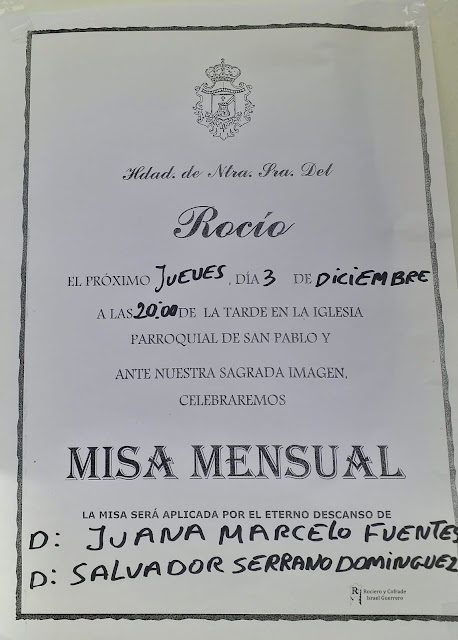 Hdad. de Ntra. Sra. Del
Rocío
EL PRÓXIMO JUEVES, DÍA 3 DE DICIEMBRE
A LAS 20:00 DE LA TARDE EN LA IGLESIA
PARROQUIAL DE SAN PABLO Y
ANTE NUESTRA SAGRADA IMAGEN,
CELEBRAREMOS
MISA MENSUAL
LA MISA SERÁ APLICADA POR EL ETERNO DESCANSO DE
D: JUANA MARCELO FUENTES
D: SALVADOR SERRANO DOMINGUEZ
R Rociero y Cofrade
Israel Guerrero